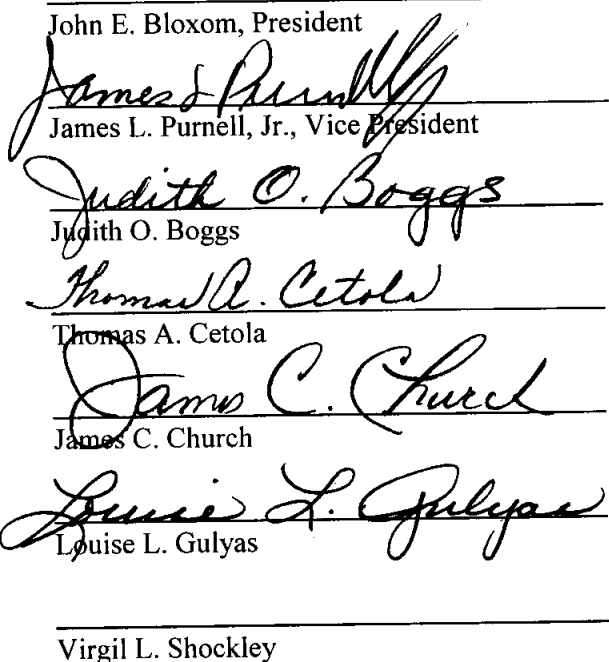 John E. Bloxom, President
James L Purnell Jr
James L. Purnell, Jr., Vice President
Judith O. Boggs
Judith O. Boggs
Thomas A. Cetola
Thomas A. Cetola
James C. Church
James C. Church
Louise L. Gulyas
Louise L. Gulyas
Virgil L. Shockley